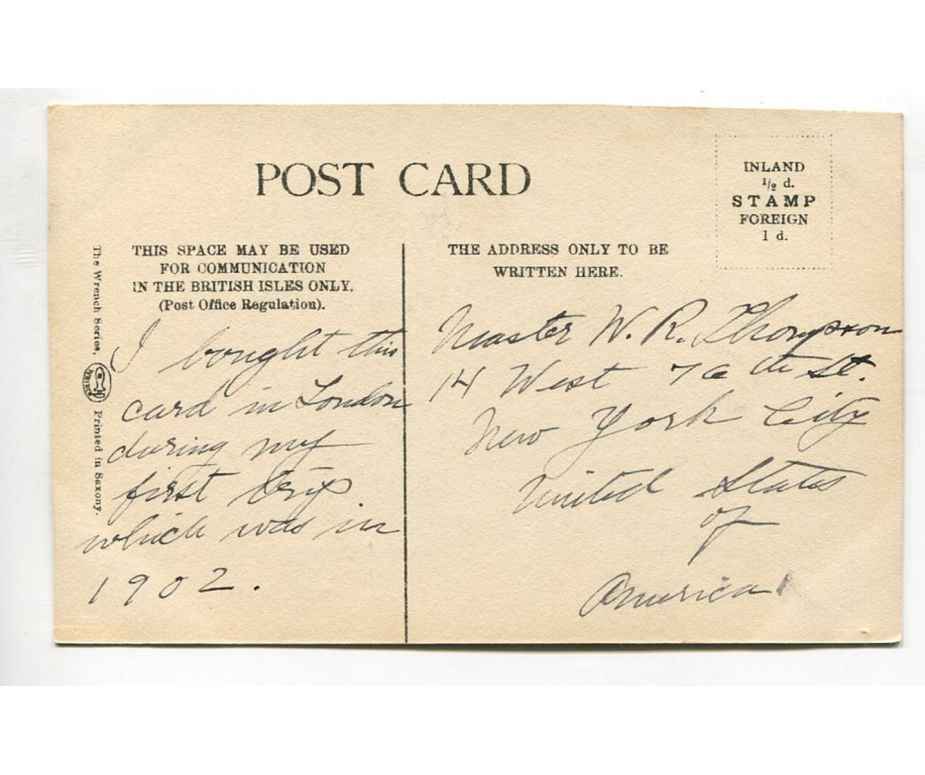 POST CARD
INLAND
½ d.
STAMP
FOREIGN
1 d.
THIS SPACE MAY BE USED
FOR COMMUNICATION
IN THE BRITISH ISLES ONLY.
(Post Office Regulation).
THE ADDRESS ONLY TO BE
WRITTEN HERE.
The Wrench Series,
Printed in Saxony.
I bought this
card in London
during my
first trip
which was in
1902.
Master W. R. Thompson
14 West 76th St.
New York City
United States
of
America